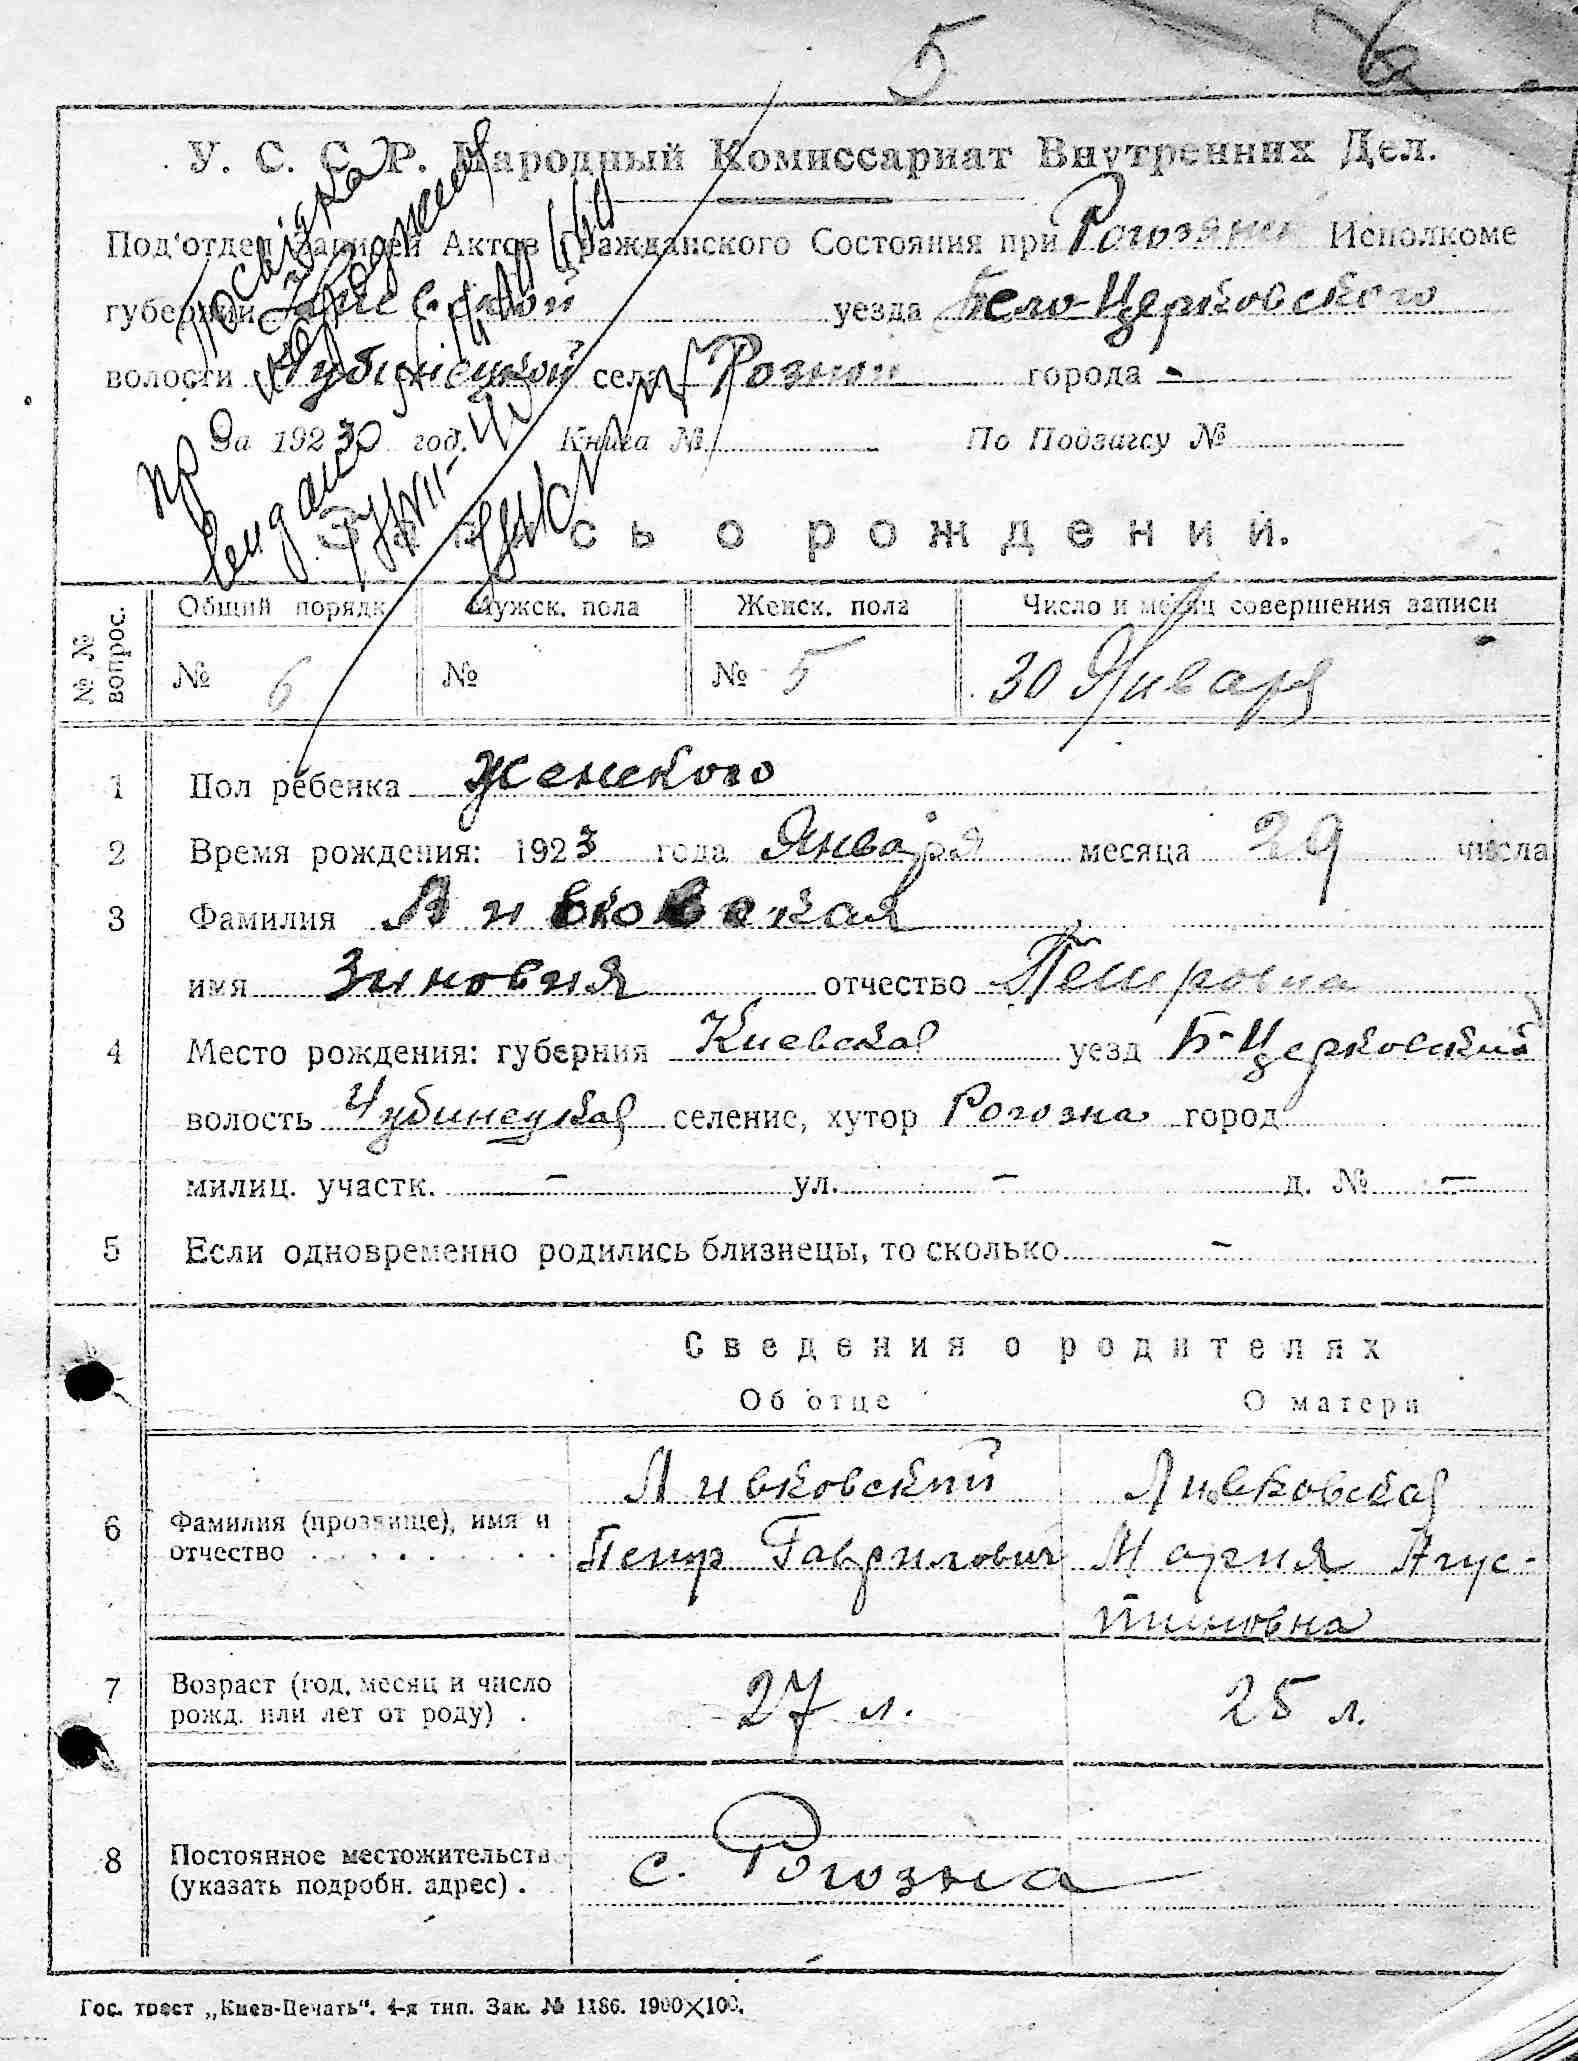 5
У. С. С. Р. Народный Комиссариат Внутренних Дел.
Под'отдел Записей Актов Гражданского Состояния при Исполкоме
губернии Киевской уезда Бело-Церковского
волости Чубинецкой села города -
За 1923 год. Книга № По Подзагсу №
Запись о рождении.
№ № вопрос.
Общий порядк Мужск. пола Женск. пола Число и месяц совершения записи
№ 6 № № 5 30 Января
1 Пол ребенка Женского
2 Время рождения: 1923 года Января месяца 29 числа
3 Фамилия Ливковская
имя Зиновия отчество Петровна
4 Место рождения: губерния Киевская уезд Б-Церковский
волость Чубинецкая селение, хутор Рогозна город
милиц. участк. - ул. - д. № -
5 Если одновременно родились близнецы, то сколько -
Сведения о родителях
Об отце О матери
Ливковский Ливковская
6 Фамилия (прозвище), имя и
отчество . . . . . . . . . Петр Гаврилович Мария Агус-
тиновна
7 Возраст (год, месяц и число
рожд. или лет от роду) . 27 л. 25 л.
8 Постоянное местожительств
(указать подробн. адрес) . с. Рогозна
Гос. трест „Киев-Печать“. 4-я тип. Зак. № 1186. 1900×100.